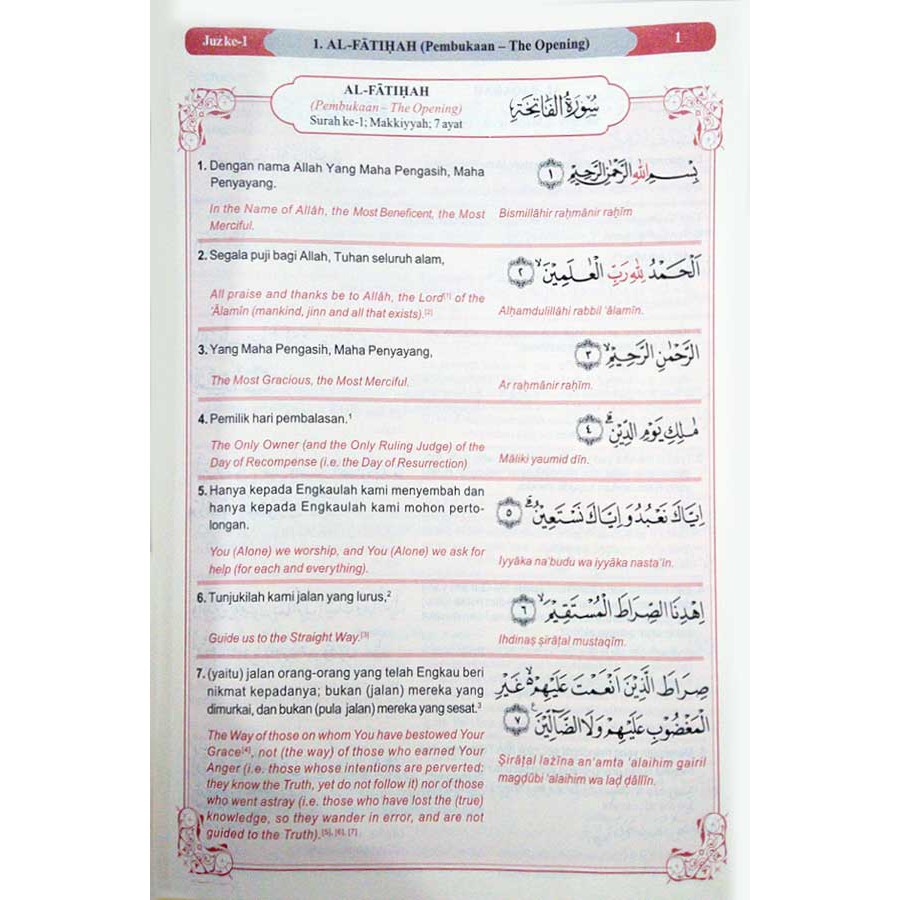 Juz ke-1
1. AL-FĀTIḤAH (Pembukaan – The Opening)
1
AL-FĀTIḤAH
(Pembukaan – The Opening)
Surah ke-1; Makkiyyah; 7 ayat
سُوْرَةُ الْفَاتِحَةِ
1. Dengan nama Allah Yang Maha Pengasih, Maha
Penyayang.
In the Name of Allâh, the Most Beneficent, the Most
Merciful.
بِسْمِ اللّٰهِ الرَّحْمٰنِ الرَّحِيْمِ ١
Bismillāhir raḥmānir raḥīm
2. Segala puji bagi Allah, Tuhan seluruh alam,
All praise and thanks be to Allâh, the Lord[1] of the
'Âlamîn (mankind, jinn and all that exists).[2]
اَلْحَمْدُ لِلّٰهِ رَبِّ الْعٰلَمِيْنَۙ ٢
Alḥamdulillāhi rabbil 'ālamīn.
3. Yang Maha Pengasih, Maha Penyayang,
The Most Gracious, the Most Merciful.
الرَّحْمٰنِ الرَّحِيْمِۙ ٣
Ar raḥmānir raḥīm.
4. Pemilik hari pembalasan.1
The Only Owner (and the Only Ruling Judge) of the
Day of Recompense (i.e. the Day of Resurrection)
مٰلِكِ يَوْمِ الدِّيْنِۗ ٤
Māliki yaumid dīn.
5. Hanya kepada Engkaulah kami menyembah dan
hanya kepada Engkaulah kami mohon perto-
longan.
You (Alone) we worship, and You (Alone) we ask for
help (for each and everything).
اِيَّاكَ نَعْبُدُ وَاِيَّاكَ نَسْتَعِيْنُۗ ٥
Iyyāka na'budu wa iyyāka nasta'īn.
6. Tunjukilah kami jalan yang lurus,2
Guide us to the Straight Way.[3]
اِهْدِنَا الصِّرَاطَ الْمُسْتَقِيْمَۙ ٦
Ihdinaṣ ṣirāṭal mustaqīm.
7. (yaitu) jalan orang-orang yang telah Engkau beri
nikmat kepadanya; bukan (jalan) mereka yang
dimurkai, dan bukan (pula jalan) mereka yang sesat.3
The Way of those on whom You have bestowed Your
Grace[4], not (the way) of those who earned Your
Anger (i.e. those whose intentions are perverted:
they know the Truth, yet do not follow it) nor of those
who went astray (i.e. those who have lost the (true)
knowledge, so they wander in error, and are not
guided to the Truth).[5], [6], [7]
صِرَاطَ الَّذِيْنَ اَنْعَمْتَ عَلَيْهِمْ ەۙ غَيْرِ
الْمَغْضُوْبِ عَلَيْهِمْ وَلَا الضَّاۤلِّيْنَ ٧
Ṣirāṭal lażīna an'amta 'alaihim gairil
magḍūbi 'alaihim wa laḍ ḍāllīn.